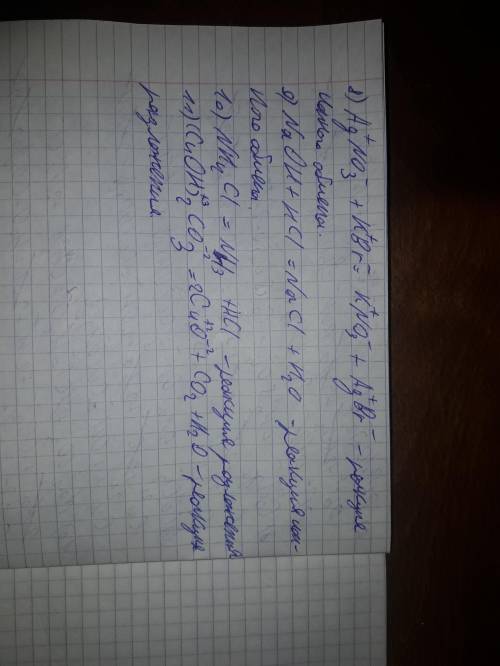 8) Ag⁺NO₃⁻ + K⁺Br⁻ = K⁺NO₃⁻ + Ag⁺Br⁻ - реакция
ионного обмена.
9) NaOH + HCl = NaCl + H₂O - реакция ион-
ного обмена.
10) NH₄Cl = NH₃ + HCl - реакция разложения
11) (CuOH)₂⁺³CO₃⁻² = 2Cu⁺²O⁻² + CO₂ + H₂O - реакция
разложения.